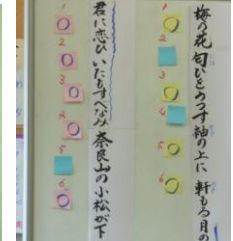 梅の花匂ひをうつす袖の上に 軒もる月の
1
2
3
4
5
6
君に恋ひいたもすべなみ 奈良山の小松が下
1
2
3
4
5
6